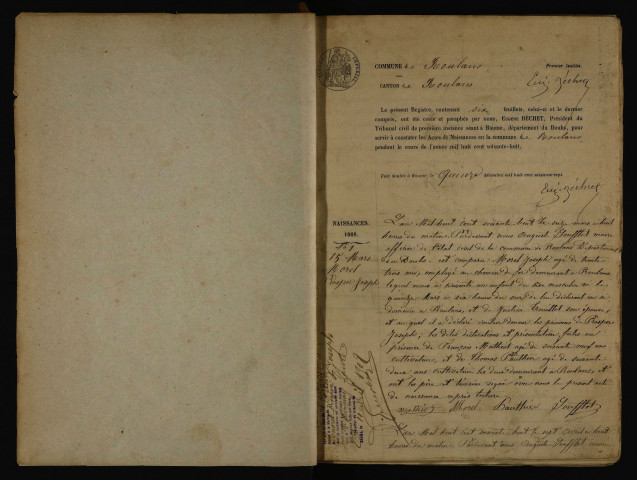 COMMUNE de Roulans
Premier feuillet.
CANTON de Roulans
Le présent Registre, contenant six feuillets, celui-ci et le dernier
compris, ont été cotés et paraphés par nous, Eugène BÉCHET, Président du
Tribunal civil de première instance séant à Baume, département du Doubs, pour
servir à constater les Actes de Naissances en la commune de Roulans
pendant le cours de l'année mil huit cent soixante-huit.
Fait double à Baume, le quinze décembre mil huit cent soixante-sept.
NAISSANCES.
1868.
N° 1
15 Mars
Morel
Prosper Joseph
L'an Mil huit cent soixante huit le seize mars à huit
heures du matin, Pardevant nous
officier de l'état civil de la commune de Roulans, département
du Doubs, est comparu Morel Joseph âgé de trente
trois ans, employé au chemin de fer demeurant à Roulans
lequel nous a présenté un enfant du sexe masculin né le
quinze Mars à six heures du soir, de lui déclarant en son
domicile à Roulans, et de son épouse,
et auquel il a déclaré vouloir donner les prénoms de Prosper
Joseph, les dites déclarations et présentation faites en
présence de François Mathiot âgé de soixante neuf ans
cultivateur, et de Thomas Pauthier âgé de soixante
deux ans cultivateur les deux demeurant à Roulans, et
ont les père et témoins signé avec nous le présent acte
de naissance après lecture.
Morel Pauthier
L'an Mil huit cent soixante huit le
heures du matin, Pardevant nous